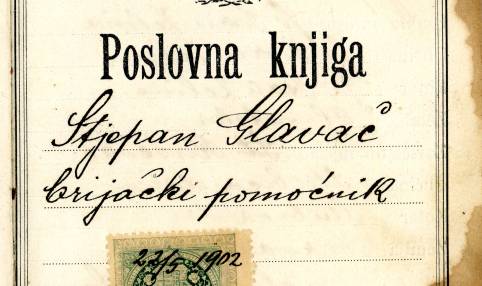 Poslovna knjiga
Stjepan Glavač
brijački pomoćnik
22/5 1902